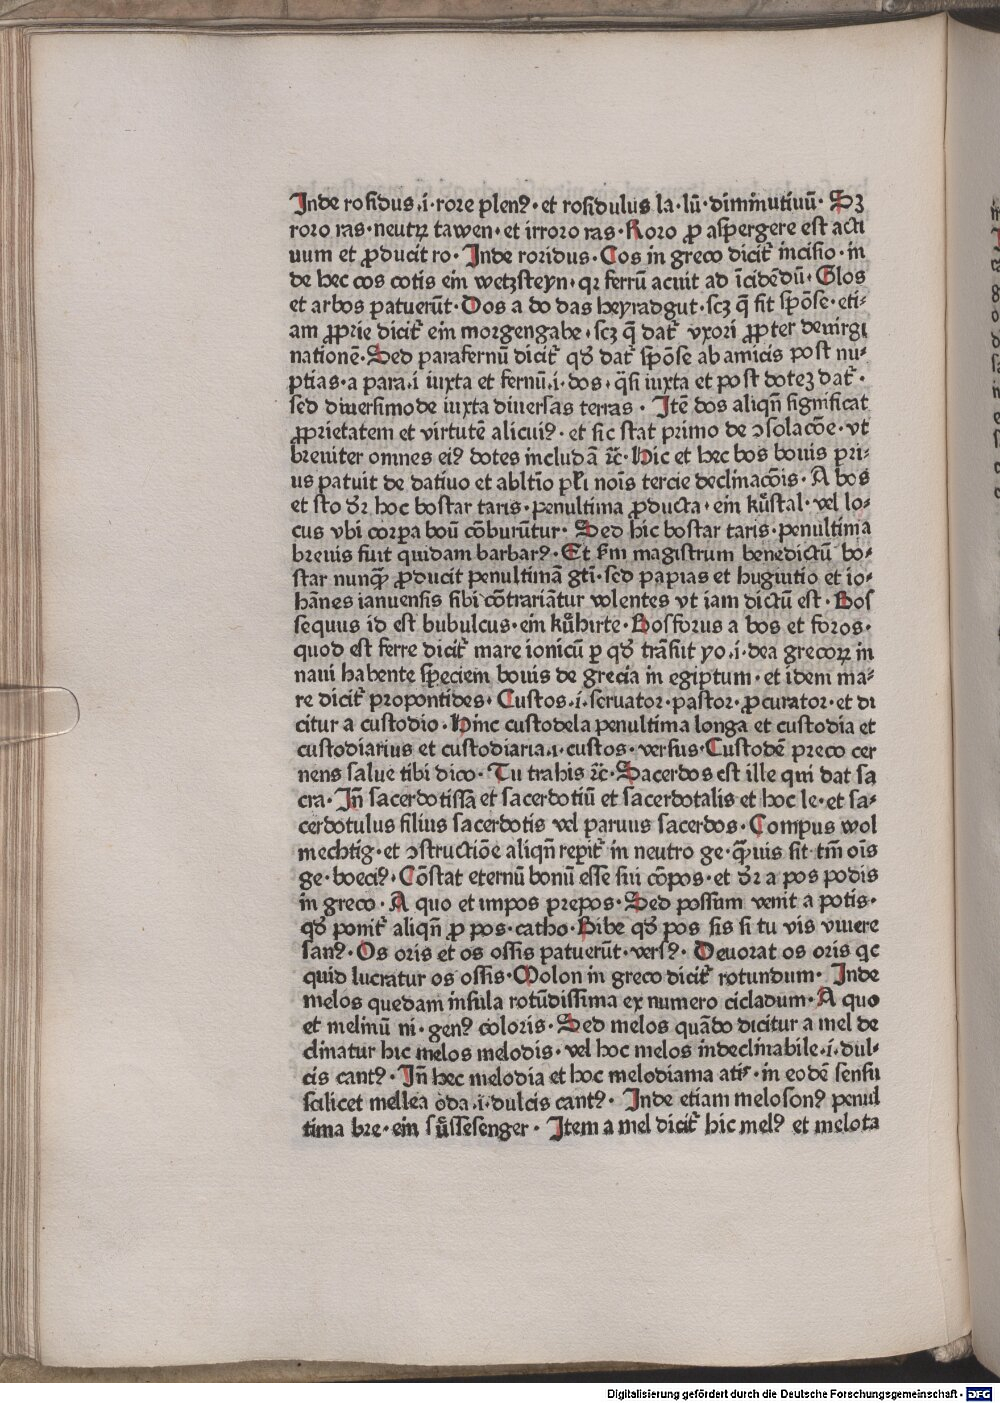 Inde rosidus·i·rore plenꝰ·et rosidulus la·lū·diminutiuū·Sꝫ
roro ras·neutꝝ tawen·et irroro ras·Roro ꝓ aspergere est acti
uum et ꝓducit ro·Inde roridus·Cos in greco dicit᷑ incisio·in
de hec cos cotis ein wetzsteyn·qꝛ ferrū acuit ad ĩcidēdū·Glos
et arbos patuerūt·Dos a do das heyradgut·scꝫ q̄ fit spōse·eti-
am ꝓprie dicit᷑ ein morgengabe·scꝫ q̄ dat᷑ vxori ꝓpter deuirgi
nationē·Sed parafernū dicit᷑ qď dat᷑ spōse ab amicis post nu-
ptias·a para·i iuxta et fernū·i·dos·q̄si iuxta et post doteꝫ dat᷑·
sed diuersimode iuxta diuersas terras·Itē dos aliqn̄ significat
ꝓprietatem et virtutē alicuiꝰ·et sic stat primo de ↄsolacōe·vt
breuiter omnes eiꝰ dotes includā ⁊c̄·Hic et hec bos bouis pri-
us patuit de datiuo et abltīo pľi nois̄ tercie declinacōis·A bos
et sto dr̄ hoc bostar taris·penultima ꝓducta·ein kůstal·vel lo-
cus vbi corpa boū cōburūtur·Sed hic bostar taris·penultima
breuis fuit quidam barbarꝰ·Et ẜm magistrum benedictū bo-
star nunq̄ ꝓducit penultimā gti̅·sed papias et hugiutio et io-
hānes ianuensis sibi cōtrariātur volentes vt iam dictū est·Bos
sequus id est bubulcus·ein kůhirte·Bosforus a bos et foros·
quod est ferre dicit᷑ mare ionicū p qď trāsiit yo·i·dea grecoꝝ in
naui habente speciem bouis de grecia in egiptum·et idem ma-
re dicit᷑ propontides·Custos·i·seruator·pastor·ꝓcurator·et di
citur a custodio·Hinc custodela penultima longa et custodia et
custodiarius et custodiaria·i·custos·versus·Custodē preco cer
nens salue tibi dico·Tu trahis ⁊c̄·Sacerdos est ille qui dat sa
cra·Jn̄ sacerdotissa et sacerdotiū et sacerdotalis et hoc le·et sa-
cerdotulus filius sacerdotis vel paruus sacerdos·Compus wol
mechtig·et ↄstructiōe aliqn̄ repit᷑ in neutro ge·q̄uis sit tm̄ ois̄
ge·boeciꝰ·Cōstat eternū bonū esse sui cōpos·et dr̄ a pos podis
in greco·A quo et impos prepos·Sed possum venit a potis·
qď ponit᷑ aliqn̄ ꝓ pos·catho·Bibe qď pos sis si tu vis viuere
sanꝰ·Os oris et os ossis patuerūt·versꝰ·Deuorat os oris qc
quid lucratur os ossis·Molon in greco dicit᷑ rotundum·Inde
melos quedam insula rotūdissima ex numero cicladum·A quo
et melinū ni·genꝰ coloris·Sed melos quādo dicitur a mel de
clinatur hic melos melodis·vel hoc melos indeclinabile·i·dul-
cis cantꝰ·Jn̄ hec melodia et hoc melodiama atis·in eodē sensu
scilicet mellea oda·i·dulcis cantꝰ·Inde etiam melosonꝰ penul
tima bre·ein sůssesenger·Item a mel dicit᷑ hic melꝰ et melota
Digitalisierung gefördert durch die Deutsche Forschungsgemeinschaft - DFG